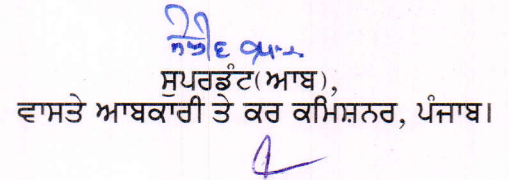 ਸੁਪਰਡੰਟ(ਆਬ),
ਵਾਸਤੇ ਆਬਕਾਰੀ ਤੇ ਕਰ ਕਮਿਸ਼ਨਰ, ਪੰਜਾਬ।